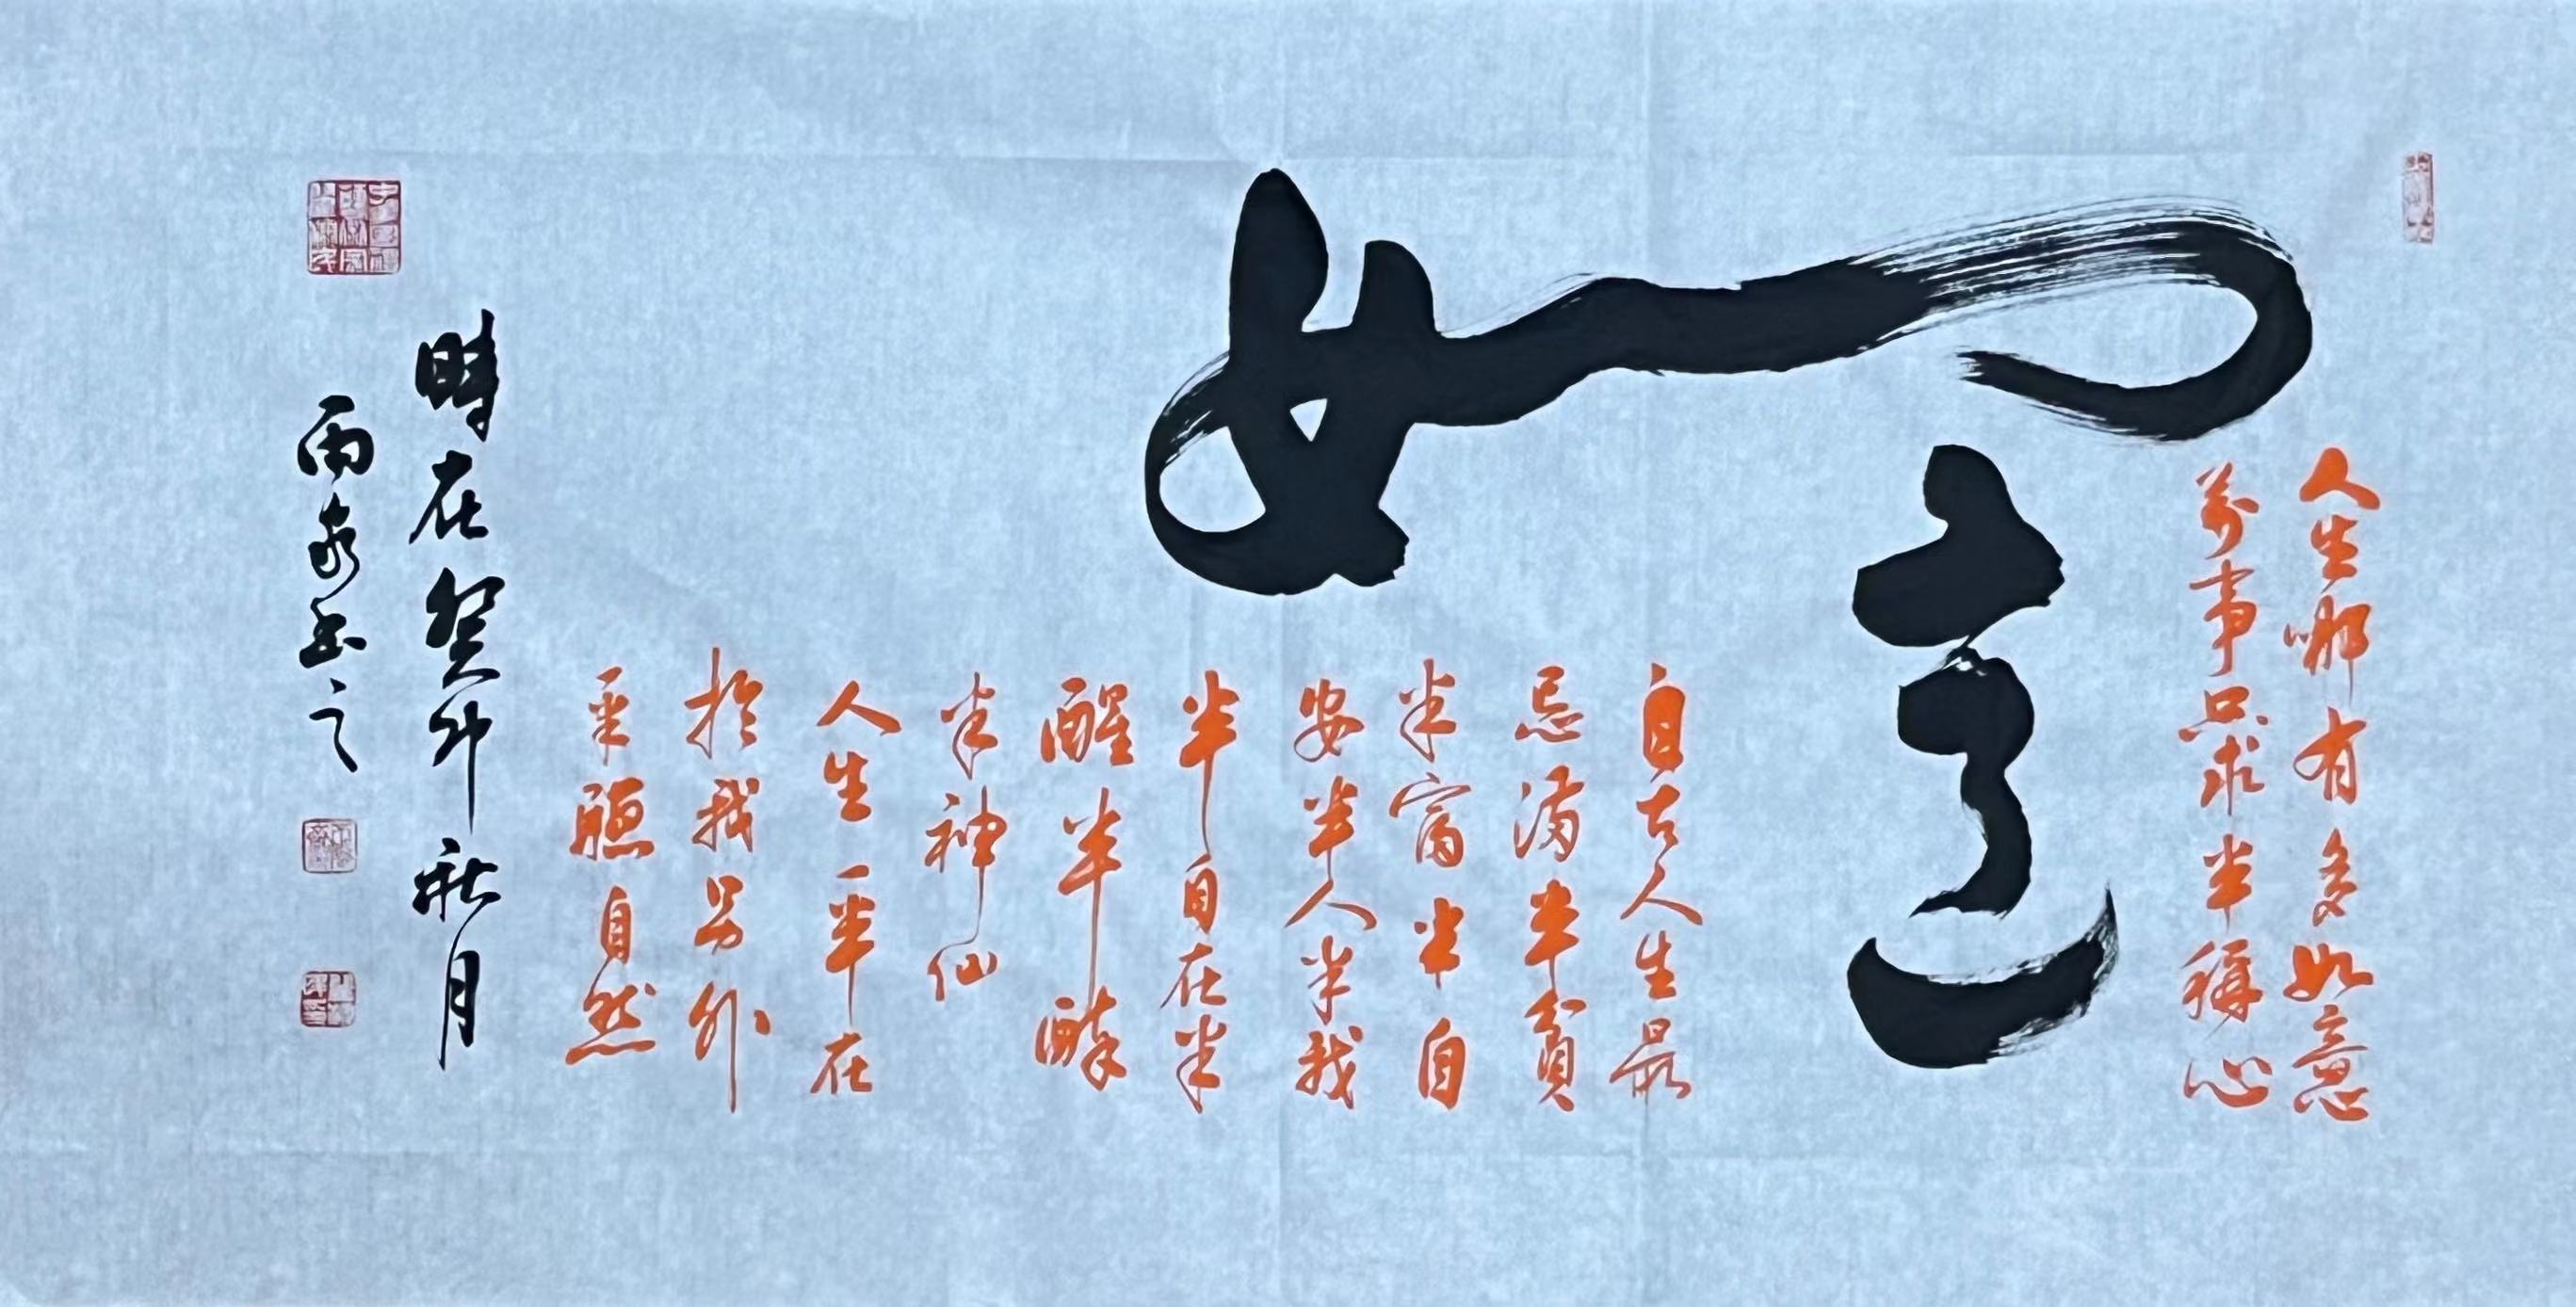 人生哪有多如意
萬事只求半稱心
如意
自古人生最
忌滿半貧
半富半自
安半人半我
半自在半
醒半醉
半神仙
人生一半在
於我另外
一半聽自然
時在癸卯秋月
雨家書之